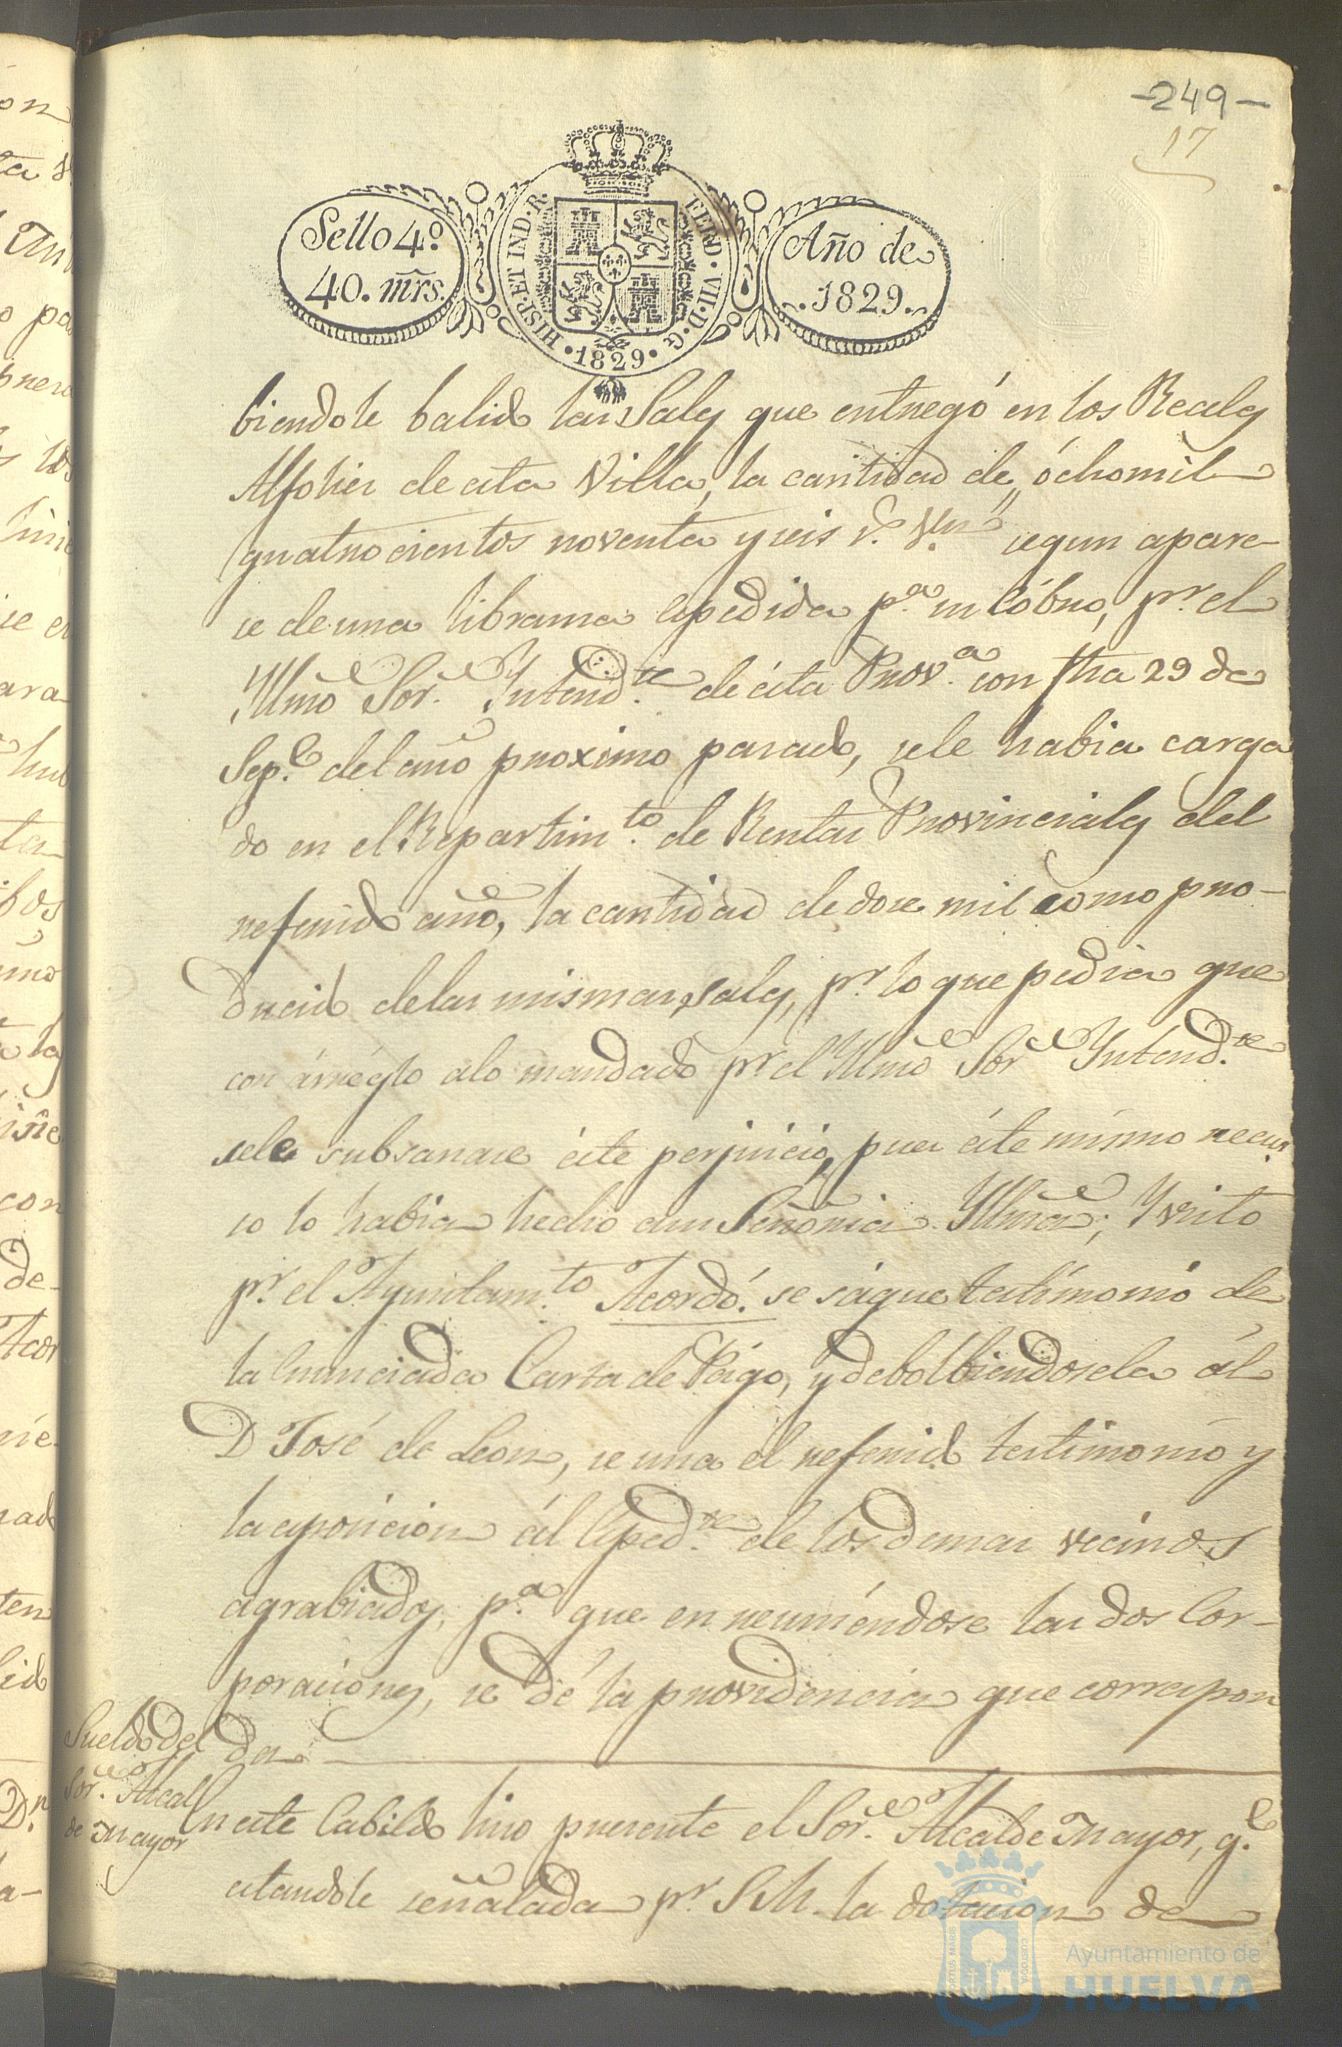 -249-
17
Sello 4º
40. mrs.
HISP. ET IND. R.
FERD. VII. D. G.
1829
Año de
1829
biendole balido las Sales que entregó en los Reales
Alfolies de esta Villa, la cantidad de óchomil
quatrocientos noventa y seis r.s V.n segun apare-
se de una librama espedida p.a su cóbro, p.r el
Yllmo Sor. Yntend.te de ésta Prov.a con fha 29 de
Sep.e del año proximo pasado, sele habia carga
do en el Repartim.to de Rentas Provinciales del
referido año, la cantidad de dose mil como pro-
ducido delas mismas sales, p.r lo que pedia que
con árreglo alo mandado p.r el Yllmo Sor Yntend.te
sele subsanase éste perjuicio, pues éste mismo recur
so lo habia hecho asu Señoria Yllma; Y visto
p.r el Ayuntam.to Acordó: se sáque testimonio de
la Enunciada Carta de Págo, y debolbiendosela ál
D José de Leon, se una el referido testimonio y
la esposicion ál Esped.te de los demas vecinos
agrabiados, p.a que en reuniéndose las dos Cor-
poraciones, se dé la providencia que correspon
da
Sueldo del
Sor. Alcal
de Mayor
En este Cabildo hiso presente el Sor. Alcalde Mayor, q.e
estandole señalada p.r S.M. la dotacion de
Ayuntamiento de
HUELVA